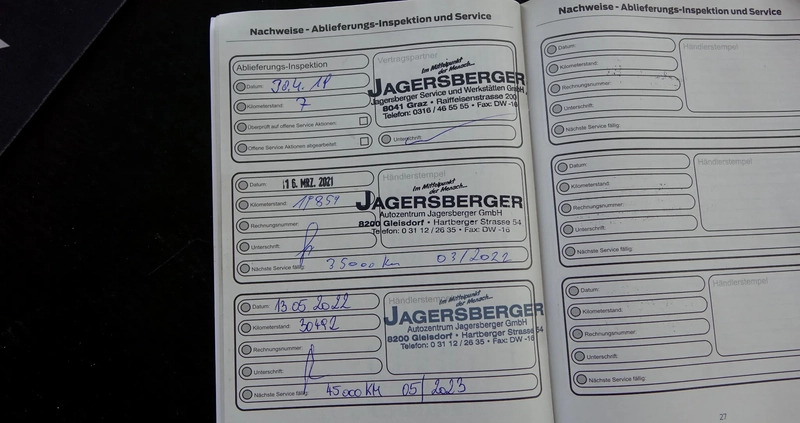 Nachweise - Ablieferungs-Inspektion und Service
Ablieferungs-Inspektion
Datum: 30.4.18
Kilometerstand: 7
Überprüft auf offene Service Aktionen:
Offene Service Aktionen abgearbeitet:
Vertragspartner
Im Mittelpunkt
der Mensch...
JAGERSBERGER
Jagersberger Service und Werkstätten GmbH
8041 Graz • Raiffeisenstrasse 200
Telefon: 0316 / 46 55 55 • Fax: DW -16
Unterschrift:
Datum: 16. MRZ. 2021
Kilometerstand: 19851
Rechnungsnummer:
Unterschrift:
Nächste Service fällig: 35000 Km 03/2022
Händlerstempel
Im Mittelpunkt
der Mensch...
JAGERSBERGER
Autozentrum Jagersberger GmbH
8200 Gleisdorf • Hartberger Strasse 54
Telefon: 0 31 12 / 26 35 • Fax: DW -16
Datum: 13 05 2022
Kilometerstand: 30492
Rechnungsnummer:
Unterschrift:
Nächste Service fällig: 45000 KM 05/2023
Händlerstempel
Im Mittelpunkt
der Mensch...
JAGERSBERGER
Autozentrum Jagersberger GmbH
8200 Gleisdorf • Hartberger Strasse 54
Telefon: 0 31 12 / 26 35 • Fax: DW -16
Nachweise - Ablieferungs-Inspektion und Service
Datum:
Kilometerstand:
Rechnungsnummer:
Unterschrift:
Nächste Service fällig:
Händlerstempel
Datum:
Kilometerstand:
Rechnungsnummer:
Unterschrift:
Nächste Service fällig:
Händlerstempel
Datum:
Kilometerstand:
Rechnungsnummer:
Unterschrift:
Nächste Service fällig:
Händlerstempel
27